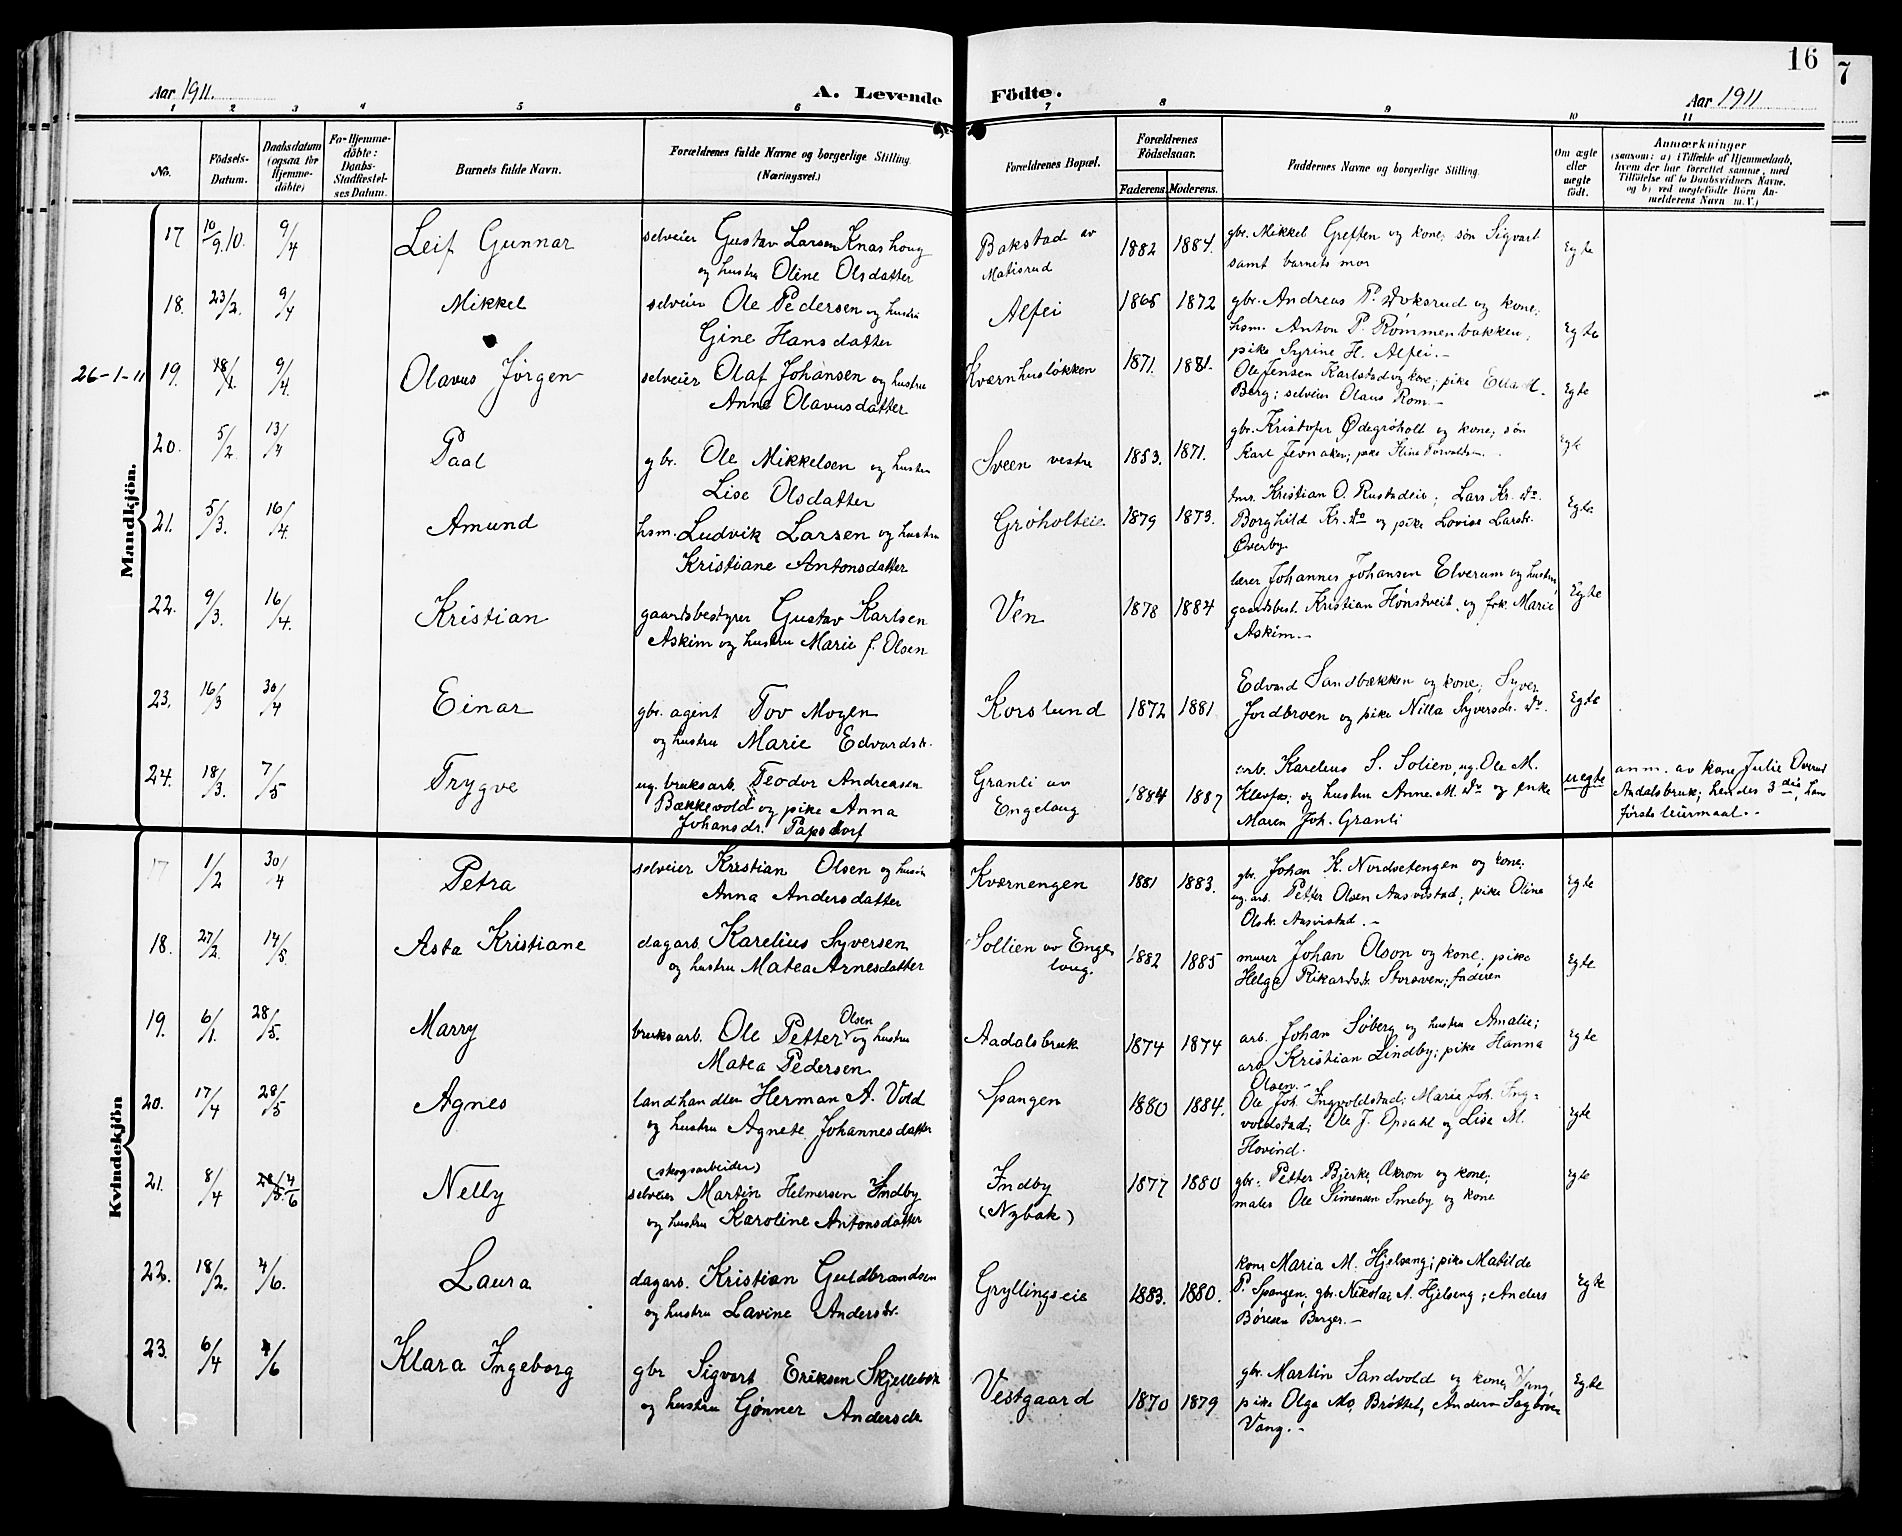 16
7
Aar 1911.
A. Levende Födte.
Aar 1911
1 2 3 4 5 6 7 8 9 10 11
No.
Födsels-Datum.
Daabsdatum (ogsaa för Hjemme-döbte)
For Hjemme-döbte: Daabs-Stadfæstel-ses Datum.
Barnets fulde Navn.
Forældrenes fulde Navne og borgerlige Stilling.
(Næringsvei.)
Forældrenes Bopæl.
Forældrenes Födselsaar.
Faderens. Moderens.
Faddernes Navne og borgerlige Stilling.
Om ægte eller uægte födt.
Anmærkninger
(saasom: a) i Tilfælde af Hjemmedaab,
hvem der har forrettet samme, med
Tilföielse af to Daabsvidners Navne,
og b) ved uægtefödte Börn An-
melderens Navn m. V.)
Mandkjön.
17 10/9.10. 9/4 Leif Gunnar
selveier Gustav Larsen Knashoug
og hustru Oline Olsdatter
Bakstad av
Matisrud
1882 1884.
gbr. Mikkel Greften og kone; søn Sigvart
samt barnets mor
Egte
18. 23/2. 9/4 Mikkel
selveier Ole Pedersen og hustru
Gine Hansdatter
Alfei
1865 1872
gbr. Andreas P. Stoksrud og kone;
hsm. Anton P. Rømmenbakken;
pike Syrine H. Alfei.-
Egte
26-1-11 19. 18/1. 9/4. Olavus Jörgen
selveier Olaf Johansen og hustru
Anne Olavusdatter
Kværnhusløkken
1871. 1881.
Ole Jensen Karlstad og kone; pike Ella M.
Berg; selveier Olaus Rom.-
Egte
20. 5/2. 13/4 Paal
gbr. Ole Mikkelsen og hustru
Lise Olsdatter
Sveen vestre
1853. 1871.
gbr. Kristofer Ødegröholt og kone; søn
Karl Jevnaker; pike
Egte
21. 5/3. 16/4. Amund
hsm. Ludvik Larsen og hustru
Kristiane Antonsdatter
Gröholteie
1879 1873.
tmr. Kristian O. Rustadeie; Lars Kr. do.
Borghild Kr. do og pike Lovise Larsdr.
Øverby
Egte
22. 9/3. 16/4. Kristian
gaardsbestyrer Gustav Karlsen
Askim og hustru Marie f. Olsen
Ven
1878 1884
lærer Johannes Johansen Elverum og hustru
gaardsbest. Kristian Hönstveit, og frk. Marie
Askim.-
Egte
23. 16/3 30/4 Einar
gbr. agent Tov Moyen
og hustru Marie Edvardsdr.
Korslund
1872 1881
Edvard Sandbækken og kone; Syver
Jordbroen og pike Nilla Syversdr. do.
Egte
24. 18/3. 7/5 Trygve
ug. bruksarb. Teodor Andreasen
Bækkevold og pike Anna
Johansdr. Papsdorf
Granli av
Engelaug
1884 1887
arb. Karelius S. Solien, ug. Ole M.
Klevfos; og hustru Anne M. do og enke
Maren Joh. Granli
uegte
anm. av kone Julie Overud
Aadalsbruk; hendes 3die, han
første leiermaal.-
Kvindekjön
17 1/2 30/4 Petra
selveier Kristian Olsen og hustru
Anna Andersdatter
Kværnengen
1881 1883.
gbr. Johan K. Nordvetengen og kone;
ug. arb. Petter Olsen Aasvistad; pike Oline
Olsdr. Aasvistad.-
Egte
18. 27/2. 14/5 Asta Kristiane
dagarb. Karelius Syversen
og hustru Matea Arnesdatter
Sollien av Enge
laug.
1882 1885
murer Johan Olson og kone; pike
Helga Rikardsdr. Storsven; faderen
Egte
19. 6/1. 28/5. Marry
bruksarb. Ole Petter Olsen og hustru
Matea Pedersen
Aadalsbruk
1874 1874
arb. Johan Søberg og hustru Amalie;
arb. Kristian Lindby; pike Hanna
Olsen.-
Egte
20. 17/4 28/5 Agnes
landhandler Herman A. Vold
og hustru Agnete Johannesdatter
Spangen
1880 1884.
Ole Joh. Ingvoldstad; Maria Joh. Ing-
voldstad; Ole J. Opsahl og Lise M.
Hovind.
Egte
21. 8/4 28/5. 4/6 Nelly
(skogsarbeider)
selveier Martin Helmersen Indby
og hustru Karoline Antonsdatter
Indby
(Nybak)
1877 1880
gbr. Petter Bjerke, Akron og kone;
maler Ole Simensen Smeby og kone
Egte
22. 18/2. 4/6. Laura
dagarb. Kristian Guldbrandsen
og hustru Lavine Andersdr.
Gryllingseie
1883. 1880.
kone Maria M. Hjelsang; pike Matilde
P. Spangen; gbr. Nikolai A. Hjelseng; Anders
Børesen Berger.-
Egte
23. 6/4 4/6 Klara Ingeborg
gbr Sigvart Eriksen Skjellebek
og hustru Gønner Andersdr
Vestgaard
1870 1879
gbr. Martin Sandvold og kone, Vang,
pike Olga Mo, Brøttet, Anders Sagbroen
Vang.-
Egte